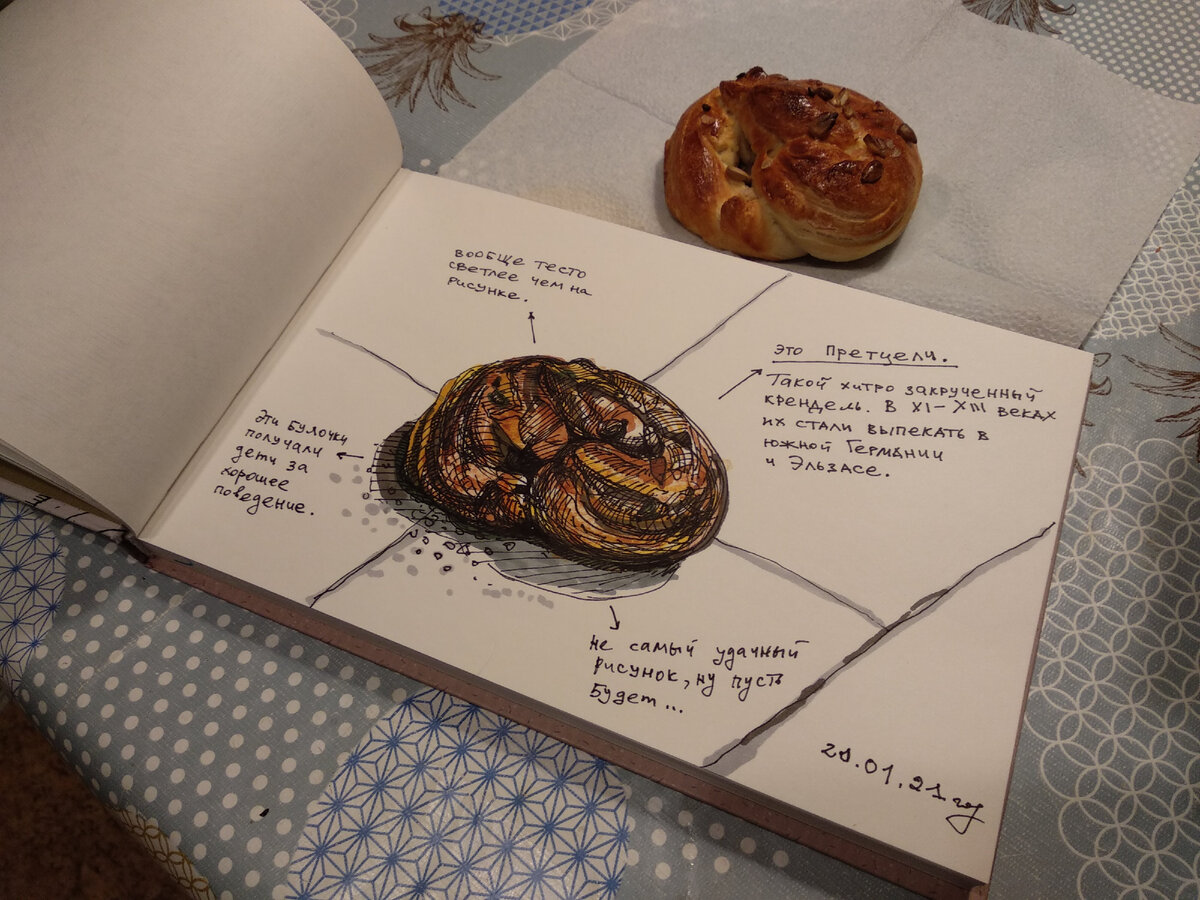 вообще тесто
светлее чем на
рисунке.
Это Претцели.
Такой хитро закрученный
крендель. В XI-XIII веках
их стали выпекать в
южной Германии
и Эльзасе.
Эти булочки
получали
дети за
хорошее
поведение.
не самый удачный
рисунок, ну пусть
будет...
28.01.21 год